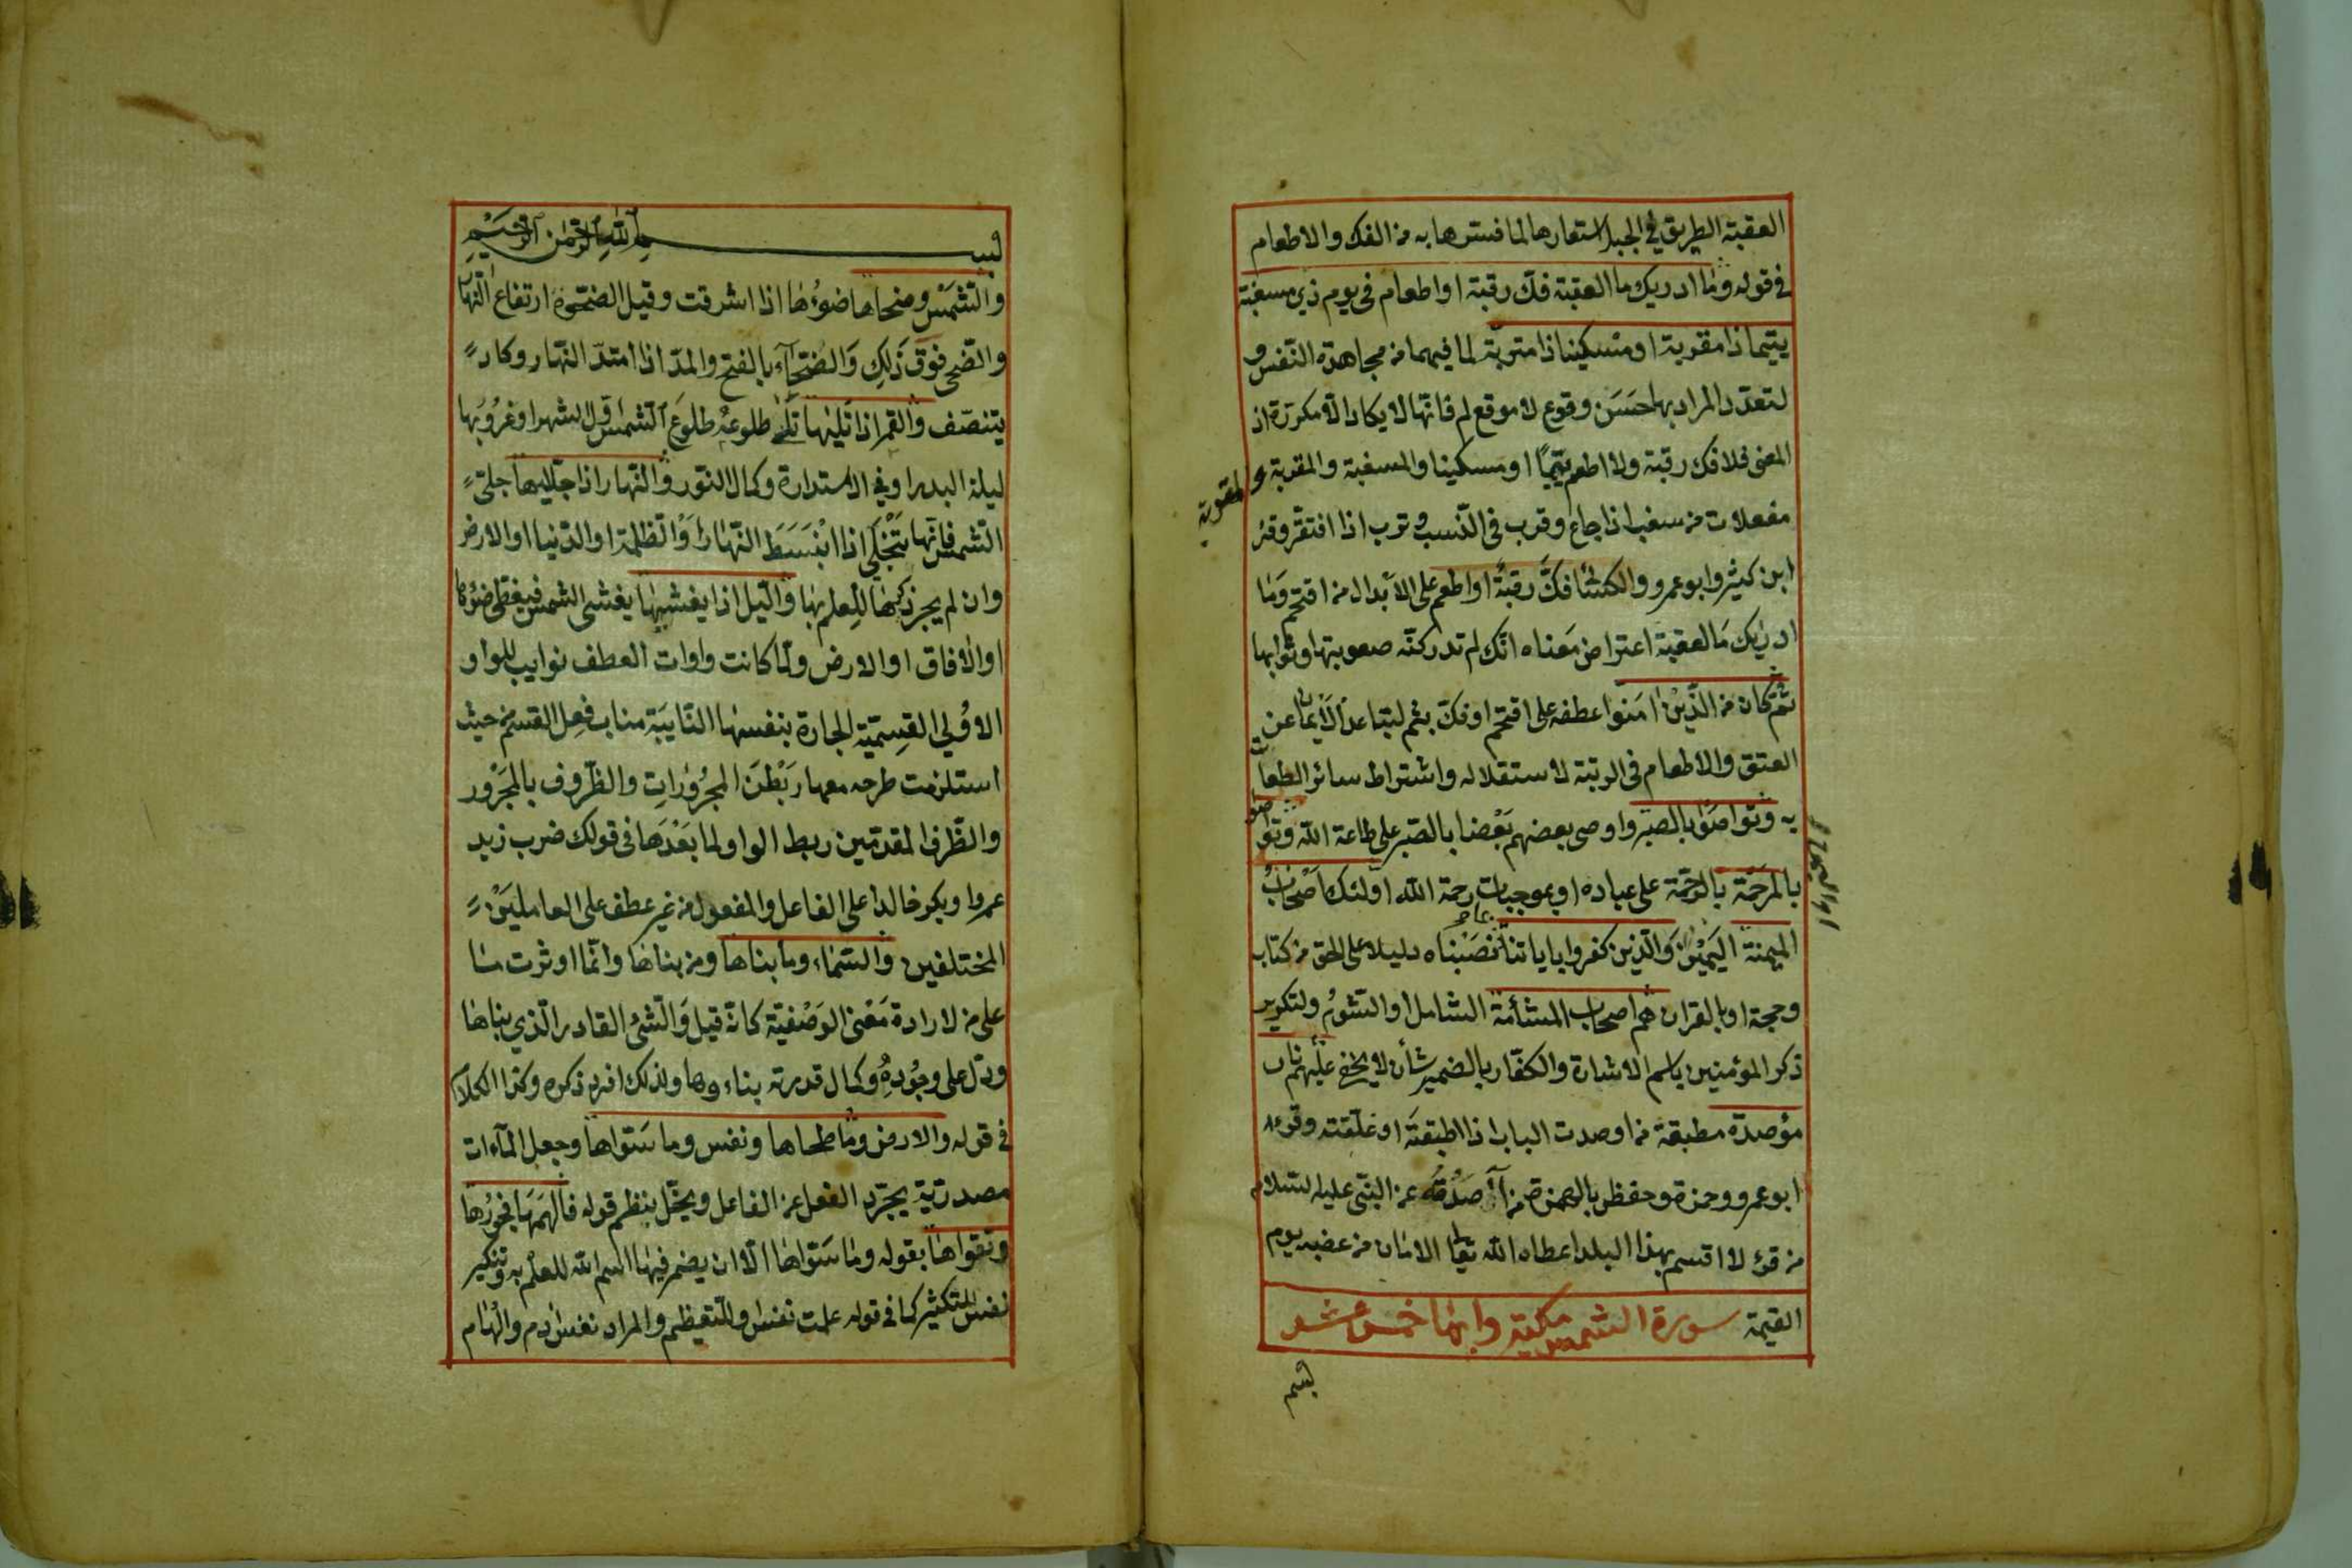 العقبة الطريق في الجبل استعارها لما فسرها به من الفك والاطعام
في قوله وما ادريك ما العقبة فك رقبة او اطعام في يوم ذي مسغبة
يتيما ذا مقربة او مسكينا ذا متربة لما فيهما من مجاهدة النفس و
لتعدد المراد بها حسن وقوع لا موقع لم فانها لا يكاد الا مكررة اذ
المعنى فلا فك رقبة ولا اطعم يتيما او مسكينا والمسغبة والمقربة و
مفعلات من سغب اذا جاع وقرب في النسب وترب اذا افتقر وقرئ
ابن كثير وابو عمرو والكسائي فك رقبة او اطعم على الابدال من اقتحم وما
ادريك ما العقبة اعتراض معناه انك لم تدر كنه صعوبتها وثوابها
ثم كان من الذين امنوا عطفه على اقتحم او فك بثم لتباعد الايمان عن
العتق والاطعام في الرتبة لاستقلاله واشتراط سائر الطعات
به وتواصوا بالصبر واوصى بعضهم بعضا بالصبر على طاعة الله وتواصو
بالمرحمة بالرحمة على عباده او بموجبات رحمة الله اولئك اصحاب
الميمنة اليمين والذين كفروا باياتنا نصبناه دليلا على الحق من كتاب
وحجة او بالقران هم اصحاب المشأمة الشامل او الشوم ولتكرير
ذكر المؤمنين باسم الاشارة والكفار بالضمير شأن لا يخفى عليهم نار
مؤصدة مطبقة من اوصدت الباب اذا اطبقته او غلقته وقرء
ابو عمرو وحمزة وحفظ بالهمزة من صدقه عن النبي عليه السلام
من قرئ لا اقسم بهذا البلد اعطاه الله تعالى الامان من غضبه يوم
القيمة سورة الشمس مكية وايها خمس عشر
بسم
بسم الله الرحمن الرحيم
والشمس وضحاها ضوءها اذا اشرقت وقيل الضحوة ارتفاع النهار
والضحى فوق ذلك والضحاء بالفتح والمد اذا امتد النهار وكاد
يتنصف والقمر اذا تليها تلى طلوعه طلوع الشمس اول الشهر او غروبها
ليلة البدر او في الاستدارة وكمال النور والنهار اذا جليها جلى
الشمس فانها تتجلى اذا انبسط النهار او الظلمة او الدنيا او الارض
وان لم يجز ذكرها للعلم بها والليل اذا يغشيها يغشى الشمس فيغطى ضوءها
او الافاق او الارض ولما كانت واوات العطف نوايب للواو
الاولي القسمية الجارة بنفسها النايبة مناب فعل القسم من حيث
استلزمت طرحه معها ربطن المجرورات والظروف بالمجرور
والظرف المقدمين ربط الواو لما بعدها في قولك ضرب زيد
عمروا وبكر خالدا على الفاعل والمفعول من غير عطف على العاملين
المختلفين والسماء وما بناها ومن بناها وانما اوثرت ما
على من لارادة معنى الوصفية كانه قيل والشئ القادر الذي بناها
ودل على وجوده وكمال قدرته بناءوها ولذلك افرد ذكره وكذا الكلام
في قوله والارض وما طحاها ونفس وما سواها وجعل الماءات
مصدرية يجرد الفعل عن الفاعل ويخل بنظم قوله فالهمها فجورها
وتقواها بقوله وما سواها الا ان يضمر فيها اسم الله للعلم به وتنكير
نفس للتكثير كما في قوله علمت نفس والتعظيم والمراد نفس ادم والهام